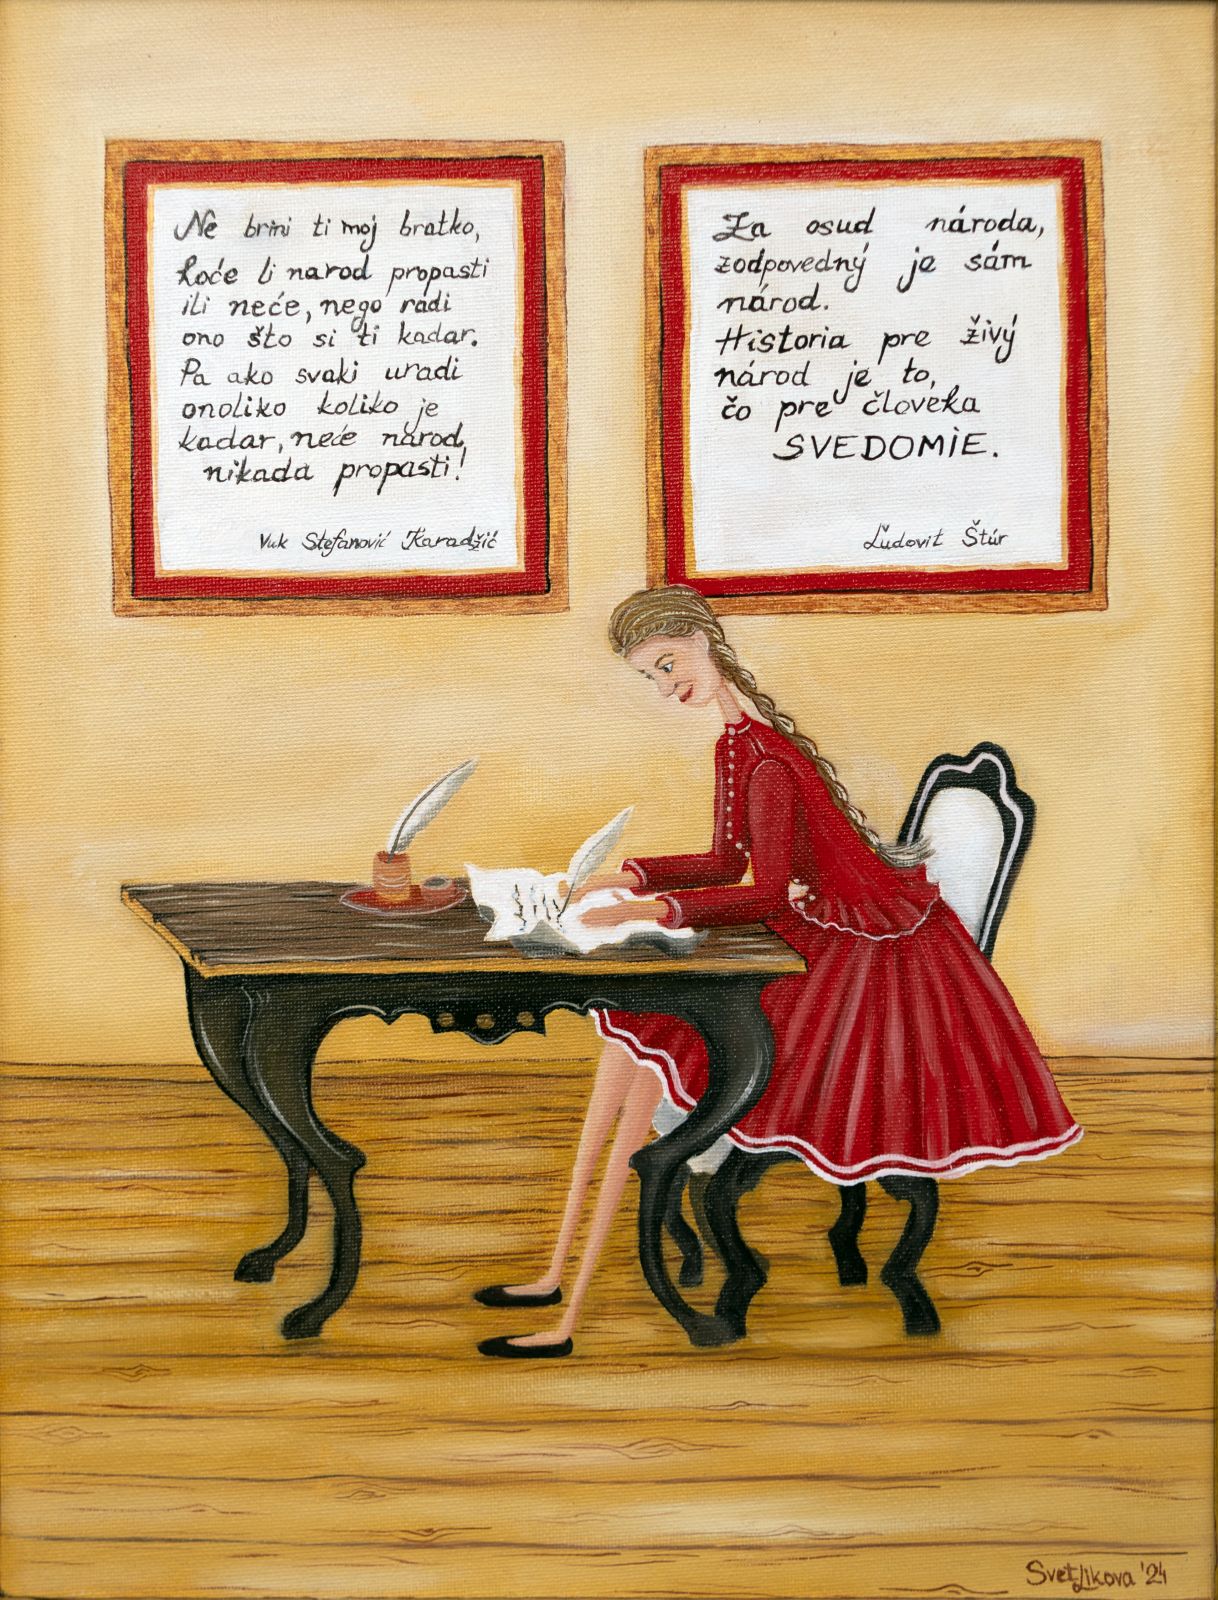 Ne brini ti moj bratko,
hoće li narod propasti
ili neće, nego radi
ono što si ti kadar.
Pa ako svaki uradi
onoliko koliko je
kadar, neće narod
nikada propasti!
Vuk Stefanović Karadžić
Za osud národa,
zodpovedný je sám
národ.
Historia pre živý
národ je to,
čo pre človeka
SVEDOMIE.
Ľudovit Štúr
Svetlikova '24